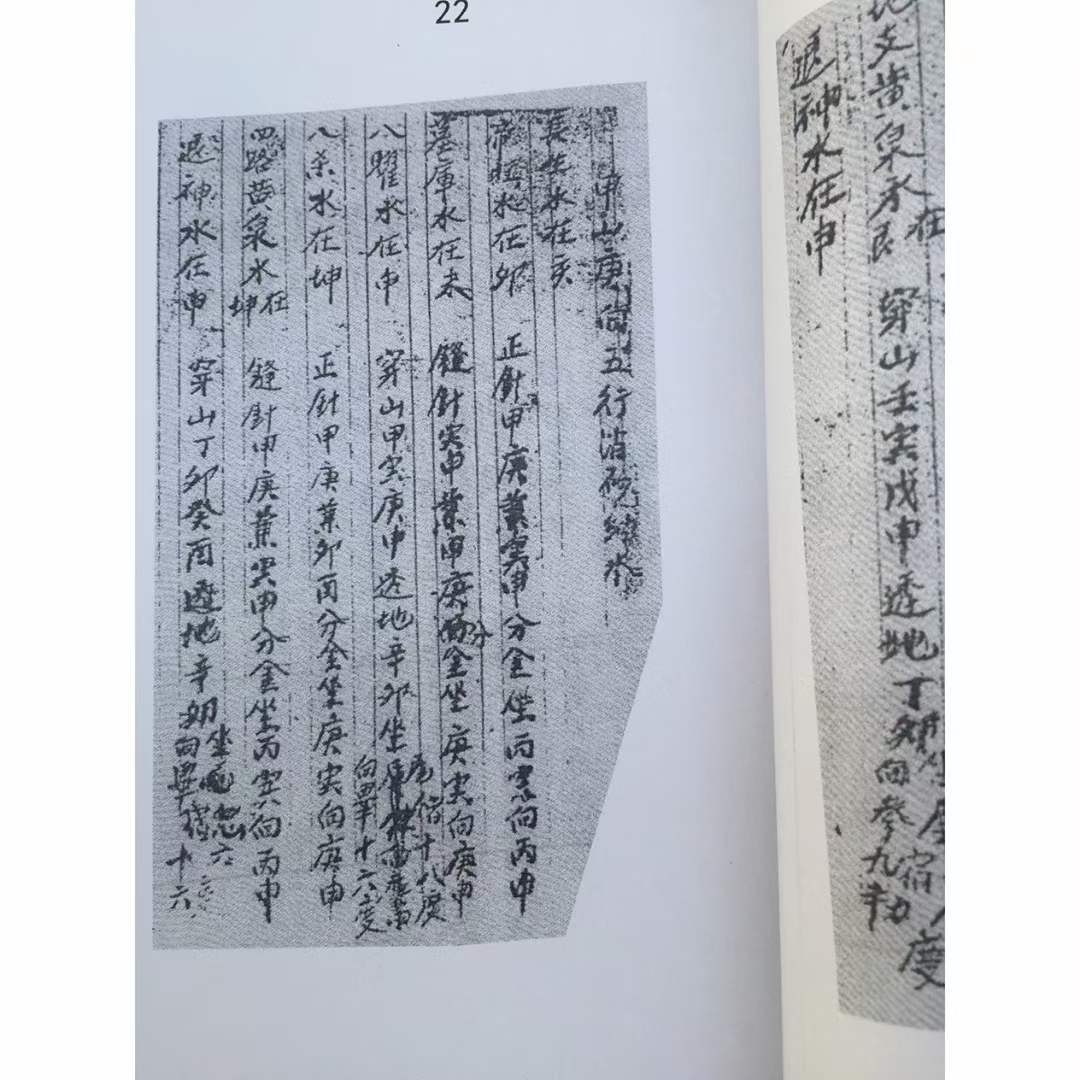 22
甲山庚向五行消砂納水
長生水在亥
帝旺水在卯 正針甲庚兼寅申分金坐丙寅向丙申
墓庫水在未 縫針寅申兼甲庚分金坐庚寅向庚申
八曜水在申 穿山甲寅庚申透地辛卯坐尾宿十八度向畢十六度
八杀水在坤 正針甲庚兼卯酉分金坐庚寅向庚申
四路黄泉水在坤 縫針甲庚兼寅申分金坐丙寅向丙申
退神水在申 穿山丁卯癸酉透地辛卯坐尾 向畢 十六
地支黄泉水在艮 穿山壬寅戊申透地丁 向參九 度
退神水在申